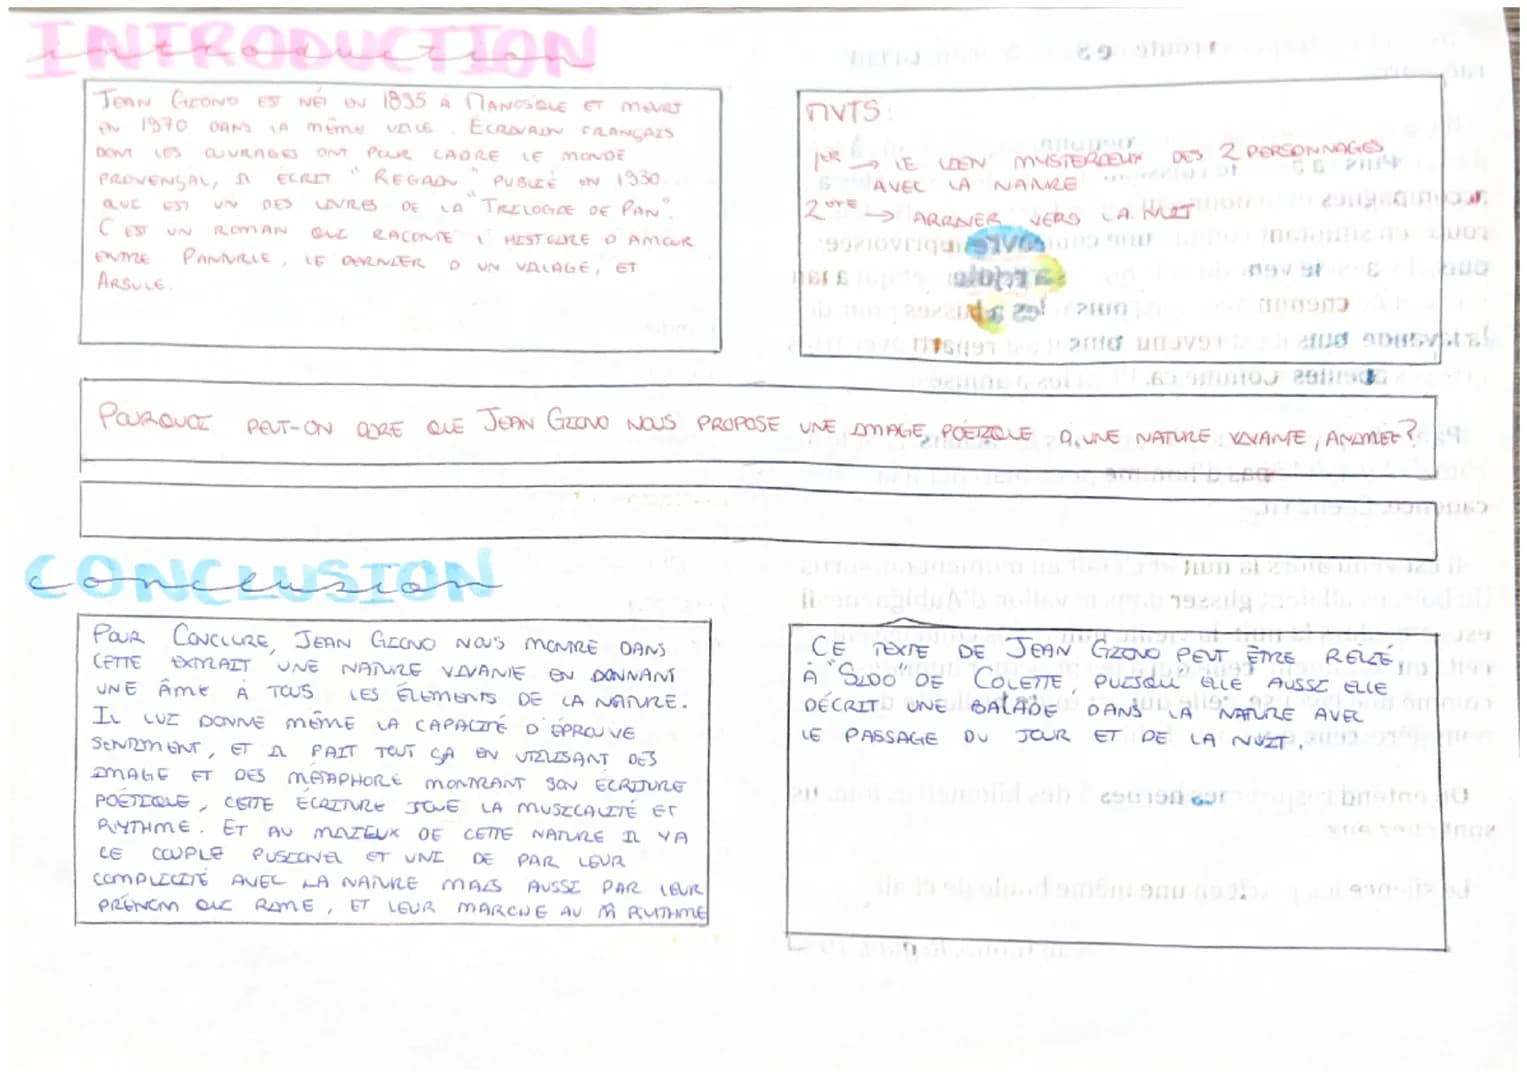 INTRODUCTION
introduction
JEAN GIONO EST NÉ EN 1895 À MANOSQUE ET MEURT
EN 1970 DANS LA MÊME VILLE. ÉCRIVAIN FRANÇAIS
DONT LES OUVRAGES ONT POUR CADRE LE MONDE
PROVENÇAL, IL ÉCRIT "REGAIN" PUBLIÉ EN 1930
QUI EST UN DES LIVRES DE LA "TRILOGIE DE PAN".
C'EST UN ROMAN QUI RACONTE L'HISTOIRE D'AMOUR
ENTRE PANTURLE, LE DERNIER D'UN VILLAGE, ET
ARSULE.
MVTS :
1er → LE LIEN MYSTERIEUX DES 2 PERSONNAGES
AVEC LA NATURE
2 → ARRIVER VERS LA NUIT
POURQUOI PEUT-ON DIRE QUE JEAN GIONO NOUS PROPOSE UNE IMAGE POÉTIQUE D'UNE NATURE VIVANTE, ANIMÉE ?
CONCLUSION
conclusion
POUR CONCLURE, JEAN GIONO NOUS MONTRE DANS
CETTE EXTRAIT UNE NATURE VIVANTE EN DONNANT
UNE ÂME À TOUS LES ÉLEMENTS DE LA NATURE.
IL LUI DONNE MÊME LA CAPACITÉ D'ÉPROUVE
SENTIMENT, ET IL FAIT TOUT ÇA EN UTILISANT DES
IMAGE ET DES MÉTAPHORE MONTRANT SON ÉCRITURE
POÉTIQUE, CETTE ÉCRITURE JOUE LA MUSICALITÉ ET
RYTHME. ET AU MILIEUX DE CETTE NATURE IL Y A
LE COUPLE FUSIONEL ET UNI DE PAR LEUR
COMPLICITÉ AVEC LA NATURE MAIS AUSSI PAR LEUR
PRÉNOM QUI RIME, ET LEUR MARCHE AU M̂ RYTHME
CE TEXTE DE JEAN GIONO PEUT ÊTRE RELIÉ
À "SIDO" DE COLETTE, PUISQU' ELLE AUSSI ELLE
DÉCRIT UNE BALADE DANS LA NATURE AVEC
LE PASSAGE DU JOUR ET DE LA NUIT.